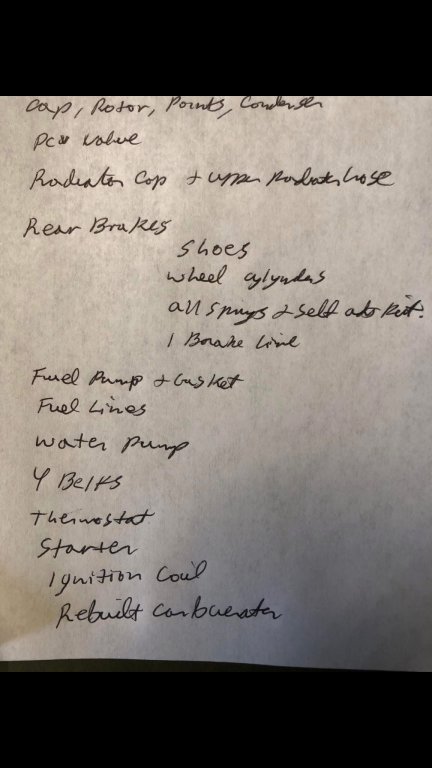 Cap, Rotor, Points, Condenser
PCV Valve
Radiator Cap + upper Radiator hose
Rear Brakes
Shoes
wheel cylynders
all springs + self adj Kit.
1 Brake Line
Fuel Pump + Gasket
Fuel Lines
water pump
4 Belts
Thermostat
Starter
Ignition Coil
Rebuilt carbuerator